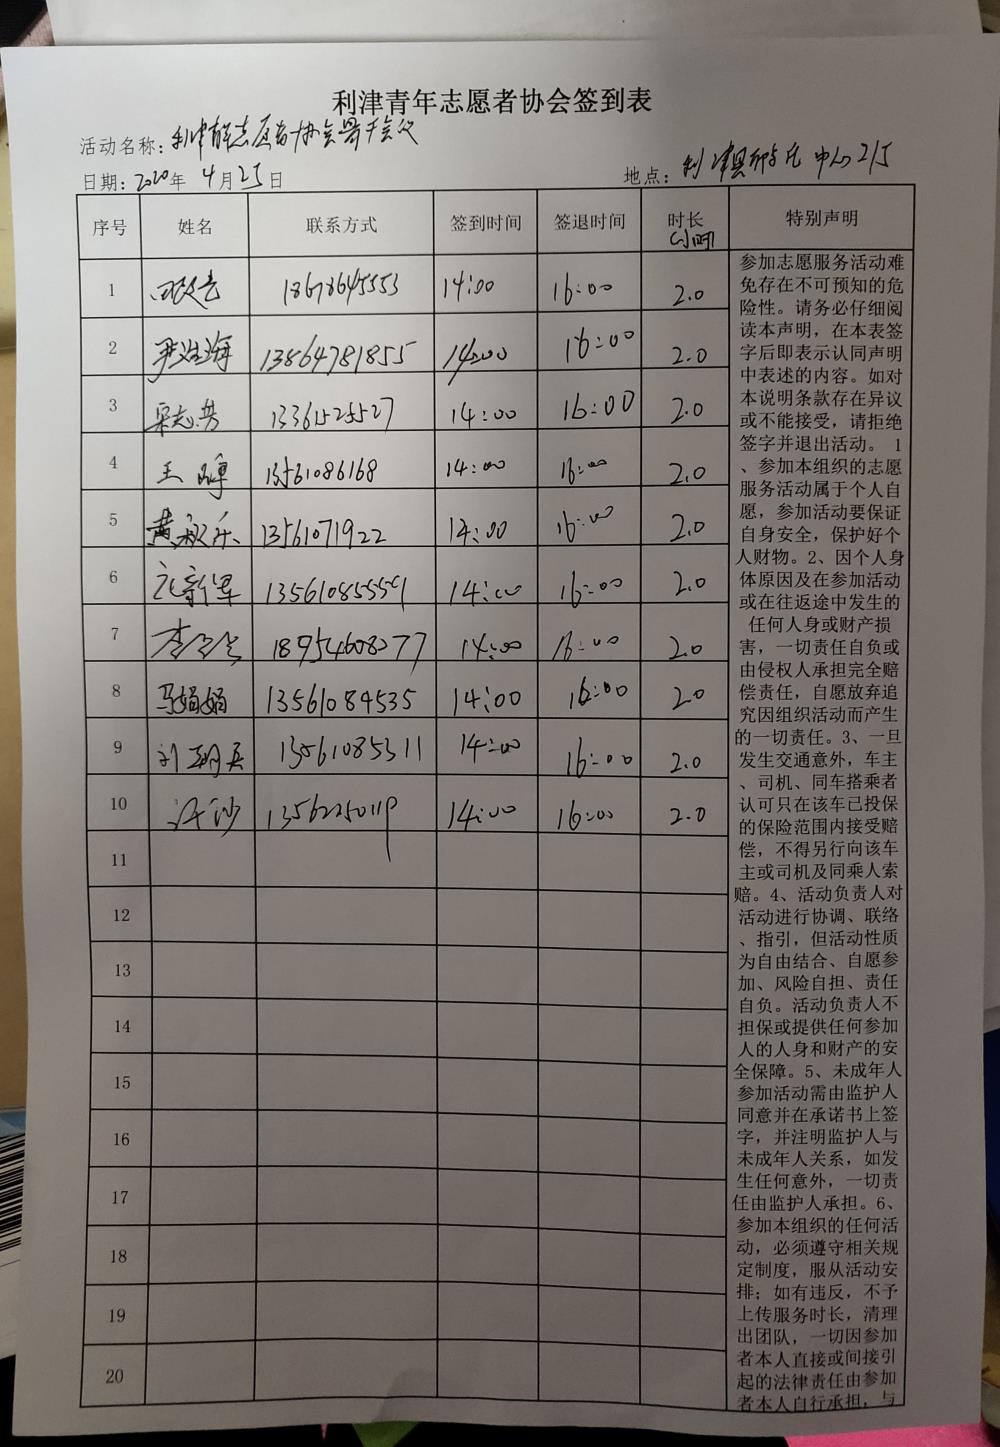 利津青年志愿者协会签到表
活动名称：利津青年志愿者协会骨干会议
日期：2020年 4月25日 地点：利津县 中心215
序号 姓名 联系方式 签到时间 签退时间 时长(小时) 特别声明
1 18678645553 14:00 16:00 2.0
2 尹 海 13864781855 14:00 16:00 2.0
3 宋志芳 13361525527 14:00 16:00 2.0
4 王 13561086168 14:00 16:00 2.0
5 黄 乐 13561071922 14:00 16:00 2.0
6 新军 13561085559 14:00 16:00 2.0
7 李 18954608077 14:00 16:00 2.0
8 马娟娟 13561084535 14:00 16:00 2.0
9 刘 13561085311 14:00 16:00 2.0
10 汪沙 13562250119 14:00 16:00 2.0
11
12
13
14
15
16
17
18
19
20
参加志愿服务活动难
免存在不可预知的危
险性。请务必仔细阅
读本声明，在本表签
字后即表示认同声明
中表述的内容。如对
本说明条款存在异议
或不能接受，请拒绝
签字并退出活动。 1
、参加本组织的志愿
服务活动属于个人自
愿，参加活动要保证
自身安全，保护好个
人财物。2、因个人身
体原因及在参加活动
或在往返途中发生的
任何人身或财产损
害，一切责任自负或
由侵权人承担完全赔
偿责任，自愿放弃追
究因组织活动而产生
的一切责任。3、一旦
发生交通意外，车主
、司机、同车搭乘者
认可只在该车已投保
的保险范围内接受赔
偿，不得另行向该车
主或司机及同乘人索
赔。4、活动负责人对
活动进行协调、联络
、指引，但活动性质
为自由结合、自愿参
加、风险自担、责任
自负。活动负责人不
担保或提供任何参加
人的人身和财产的安
全保障。5、未成年人
参加活动需由监护人
同意并在承诺书上签
字，并注明监护人与
未成年人关系，如发
生任何意外，一切责
任由监护人承担。6、
参加本组织的任何活
动，必须遵守相关规
定制度，服从活动安
排；如有违反，不予
上传服务时长，清理
出团队，一切因参加
者本人直接或间接引
起的法律责任由参加
者本人自行承担，与